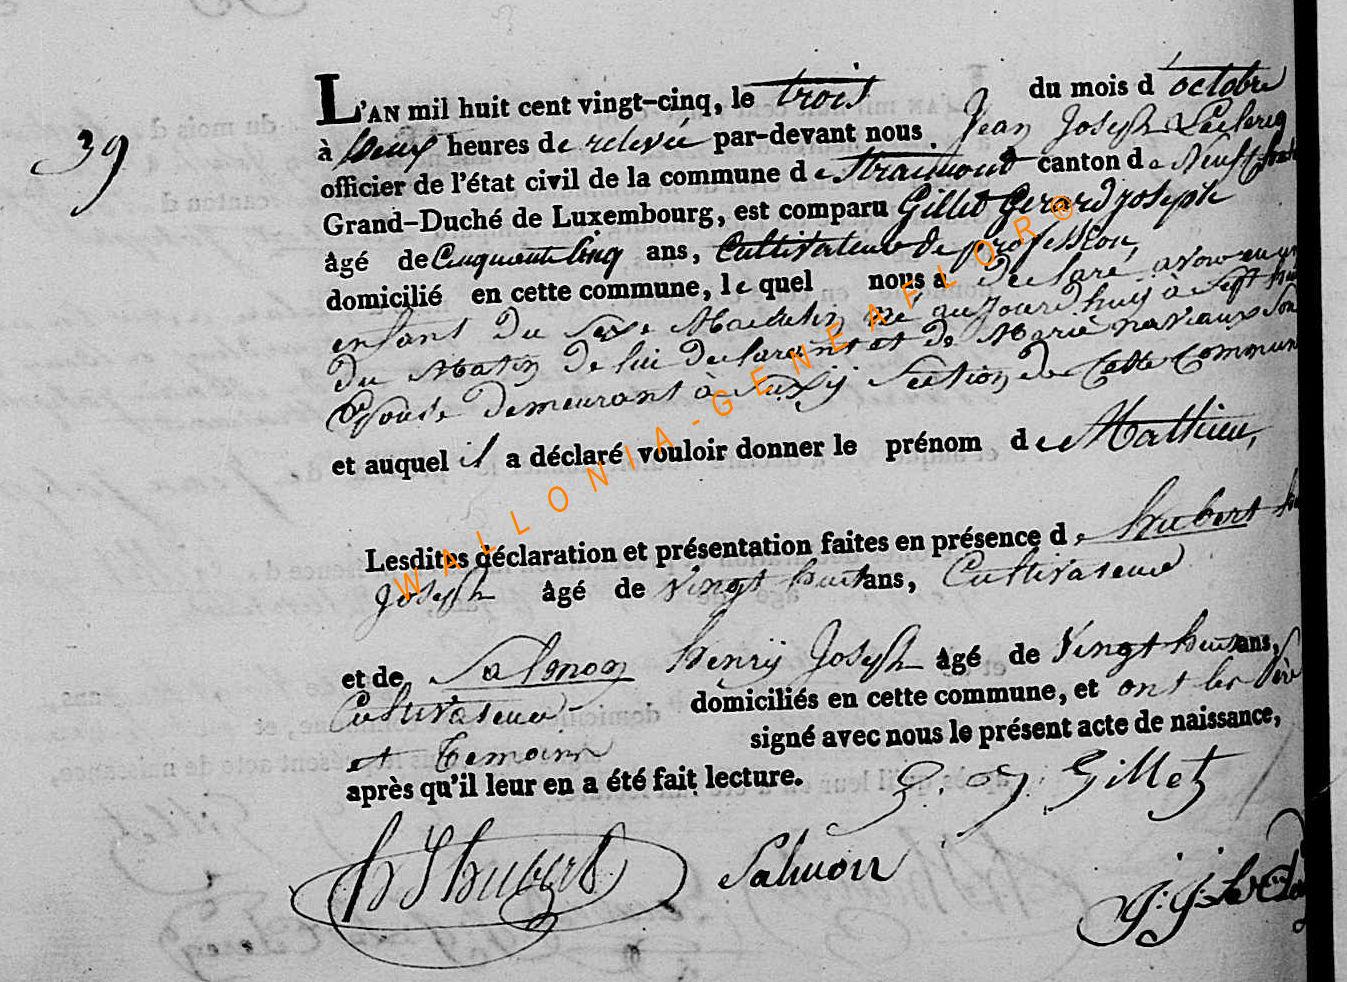 39
L'AN mil huit cent vingt-cinq, le trois du mois d octobre
à heures de relevée par-devant nous Jean Joseph Leclercq
officier de l'état civil de la commune de Straimont canton de
Grand-Duché de Luxembourg, est comparu Gillet Gerard joseph
âgé de Cinquante Cinq ans, Cultivateur de profession,
domicilié en cette commune, le quel nous a declaré avoir eu un
enfant du sexe Masculin né aujourd'huij à sept
du Matin de lui declarant et de Marie
Epouse demeurant à Suxij section de Cette Commune
et auquel il a déclaré vouloir donner le prénom de Mathieu,
Lesdites déclaration et présentation faites en présence de hubert
Joseph âgé de vingt huit ans, Cultivateur
et de Salmon henrij Joseph âgé de vingt huit ans,
Cultivateur domiciliés en cette commune, et ont les Père
et temoins signé avec nous le présent acte de naissance,
après qu'il leur en a été fait lecture.
G. J. Gillet
Hubert Salmon
WALLONIA-GENEAFLOR®